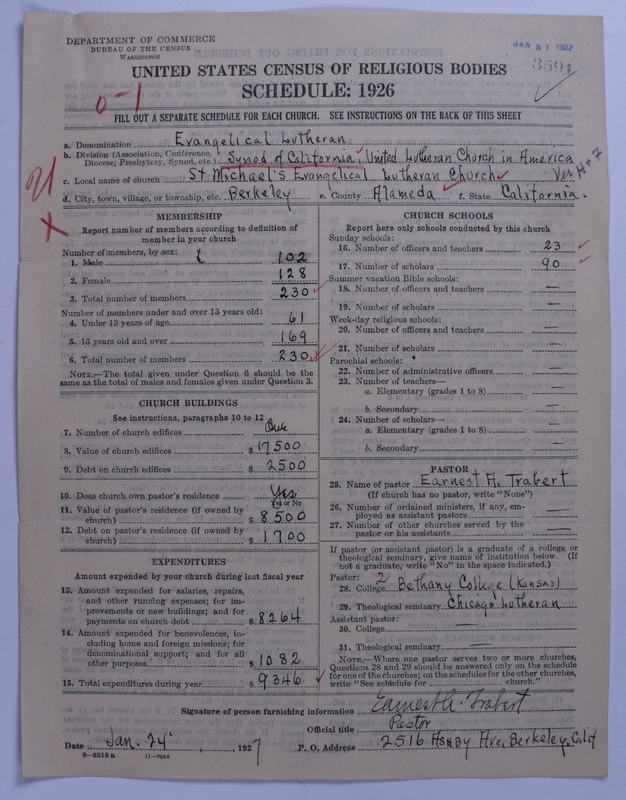 DEPARTMENT OF COMMERCE
BUREAU OF THE CENSUS
WASHINGTON
JAN 31 1927
3591
UNITED STATES CENSUS OF RELIGIOUS BODIES
SCHEDULE: 1926
0-1
FILL OUT A SEPARATE SCHEDULE FOR EACH CHURCH. SEE INSTRUCTIONS ON THE BACK OF THIS SHEET
a. Denomination Evangelical Lutheran
b. Division (Association, Conference, Diocese, Presbytery, Synod, etc.) Synod of California, United Lutheran Church in America
c. Local name of church St Michael's Evangelical Lutheran Church
d. City, town, village, or township, etc. Berkeley e. County Alameda f. State California.
MEMBERSHIP
Report number of members according to definition of
member in your church
Number of members, by sex:
1. Male 102
2. Female 128
3. Total number of members 230
Number of members under and over 13 years old:
4. Under 13 years of age 61
5. 13 years old and over 169
6. Total number of members 230
NOTE.—The total given under Question 6 should be the
same as the total of males and females given under Question 3.
CHURCH BUILDINGS
See instructions, paragraphs 10 to 12
7. Number of church edifices One
8. Value of church edifices $ 17500
9. Debt on church edifices $ 2500
10. Does church own pastor's residence Yes
Yes or No
11. Value of pastor's residence (if owned by
church) $ 8500
12. Debt on pastor's residence (if owned by
church) $ 1700
EXPENDITURES
Amount expended by your church during last fiscal year
13. Amount expended for salaries, repairs,
and other running expenses; for im-
provements or new buildings; and for
payments on church debt $ 8264
14. Amount expended for benevolences, in-
cluding home and foreign missions; for
denominational support; and for all
other purposes $ 1082
15. Total expenditures during year $ 9346
CHURCH SCHOOLS
Report here only schools conducted by this church
Sunday schools:
16. Number of officers and teachers 23
17. Number of scholars 90
Summer vacation Bible schools:
18. Number of officers and teachers —
19. Number of scholars —
Week-day religious schools:
20. Number of officers and teachers —
21. Number of scholars —
Parochial schools:
22. Number of administrative officers —
23. Number of teachers—
a. Elementary (grades 1 to 8) —
b. Secondary —
24. Number of scholars—
a. Elementary (grades 1 to 8) —
b. Secondary —
PASTOR
25. Name of pastor Earnest A. Trabert
(If church has no pastor, write "None")
26. Number of ordained ministers, if any, em-
ployed as assistant pastors —
27. Number of other churches served by the
pastor or his assistants —
If pastor (or assistant pastor) is a graduate of a college or
theological seminary, give name of institution below. (If
not a graduate, write "No" in the space indicated.)
Pastor: 2
28. College Bethany College (Kansas)
29. Theological seminary Chicago Lutheran
Assistant pastor:
30. College —
31. Theological seminary —
NOTE.—Where one pastor serves two or more churches,
Questions 28 and 29 should be answered only on the schedule
for one of the churches; on the schedules for the other churches,
write "See schedule for ______ church."
Signature of person furnishing information Earnest A. Trabert
Official title Pastor
Date Jan. 24, 1927 P. O. Address 2516 Ashby Ave. Berkeley, Calif
8-5518 a 11-9054